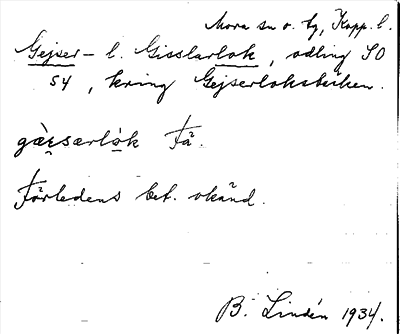 Mora sn o. tg, Kopp. l.
Gejser- l. Gisslarlok, odling SO
54, kring Gejserloksbäcken.
gàɛsærlòk Fä.
Förledens bet. okänd.
B. Lindén 1934.